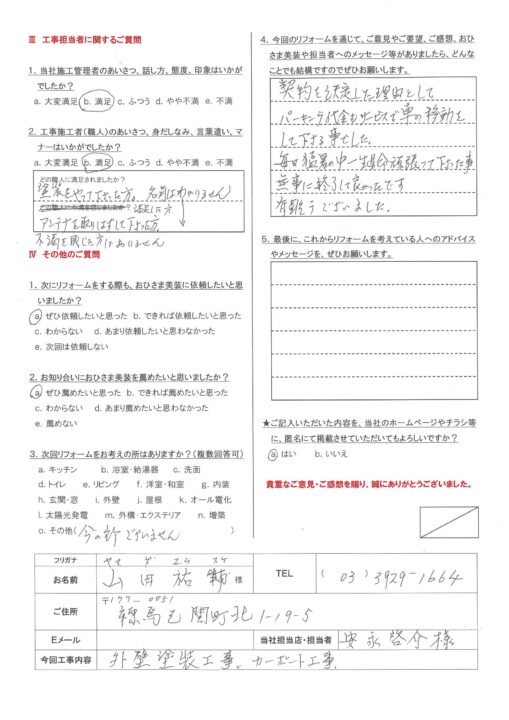 Ⅲ 工事担当者に関するご質問
1. 当社施工管理者のあいさつ、話し方、態度、印象はいかが
でしたか？
a. 大変満足 b. 満足 c. ふつう d. やや不満 e. 不満
2. 工事施工者（職人）のあいさつ、身だしなみ、言葉遣い、マ
ナーはいかがでしたか？
a. 大変満足 b. 満足 c. ふつう d. やや不満 e. 不満
どの職人に満足されましたか？
塗装をやって下さった方。名前はわかりません
どの職人に不満を感じましたか？ 満足した方
アンテナを取りはずして下さった方。
不満を感じた方はおいません
Ⅳ その他のご質問
1. 次にリフォームをする際も、おひさま美装に依頼したいと思
いましたか？
a. ぜひ依頼したいと思った b. できれば依頼したいと思った
c. わからない d. あまり依頼したいと思わなかった
e. 次回は依頼しない
2. お知り合いにおひさま美装を薦めたいと思いましたか？
a. ぜひ薦めたいと思った b. できれば薦めたいと思った
c. わからない d. あまり薦めたいと思わなかった
e. 薦めない
3. 次回リフォームをお考えの所はありますか？（複数回答可）
a. キッチン b. 浴室・給湯器 c. 洗面
d. トイレ e. リビング f. 洋室・和室 g. 内装
h. 玄関・窓 i. 外壁 j. 屋根 k. オール電化
l. 太陽光発電 m. 外構・エクステリア n. 増築
o. その他（今の所ございません）
4. 今回のリフォームを通じて、ご意見やご要望、ご感想、おひ
さま美装や担当者へのメッセージ等がありましたら、どんな
ことでも結構ですのでぜひお願いします。
契約を決定した理由として
パーキング代金もサービスで車の移動を
して下さる事でした。
毎日猛暑の中一生懸命頑張って下さった事
無事に終了して良かったです
有難うございました。
5. 最後に、これからリフォームを考えている人へのアドバイス
やメッセージを、ぜひお願いします。
★ご記入いただいた内容を、当社のホームページやチラシ等
に、匿名にて掲載させていただいてもよろしいですか？
a. はい b. いいえ
貴重なご意見・ご感想を賜り、誠にありがとうございました。
フリガナ ヤマ ダ ユウ スケ
お名前 山田祐輔 様 TEL (03) 3929-1664
ご住所 〒177-0051
練馬区関町北1-19-5
Eメール 当社担当店・担当者 安永啓介様
今回工事内容 外壁塗装工事。カーポート工事。